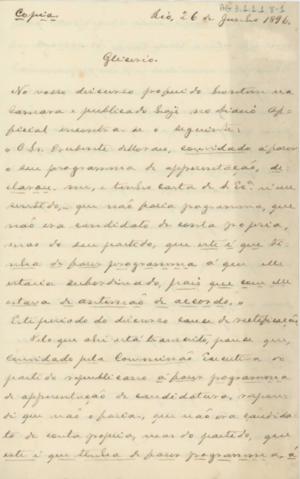 AG 3.1.1.1 8-1
Copia
Rio, 26 de Junho 1896.
Glicerio.
No vosso discurso proferido hontem na
Camara e publicado hoje no Diario Of-
ficial encontra-se o seguinte:
"O Sr. Prudente de Moraes, convidado a fazer
o seu programma de apresentação, de-
clarou-me, e tenho carta de S. Ex. n'esse
sentido, que não fazia programma, que
não era candidato de conta propria,
mas do seu partido, que este é que ti-
nha de fazer programma a que elle
estaria subordinado, pois que com elle
estava de antemão de accordo."
Este periodo do discurso carece de rectificação.
Pelo que ahi está transcrito, parece que,
convidado pela Commissão Executiva do
partido republicano a fazer programma
de apresentação de candidatura, respon-
di que não o fazia, que não era candida-
to de conta propria, mas do partido, que
este é que tinha de fazer programma, a